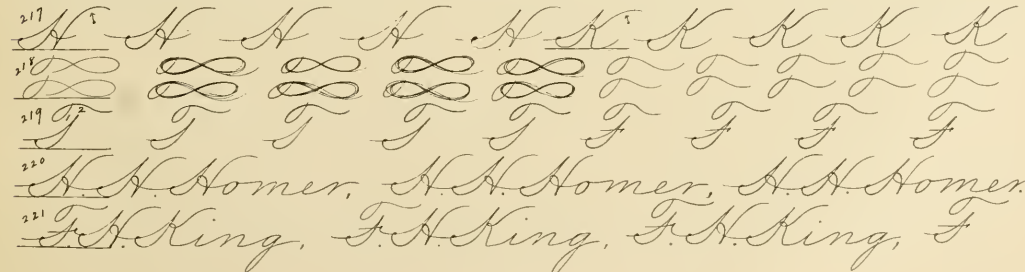 217 H H H H H K K K K K
218
219 T T T T T F F F F
220 H. H. Homer, H. H. Homer, H. H. Homer.
221 F. H. King, F. H. King, F. H. King, F